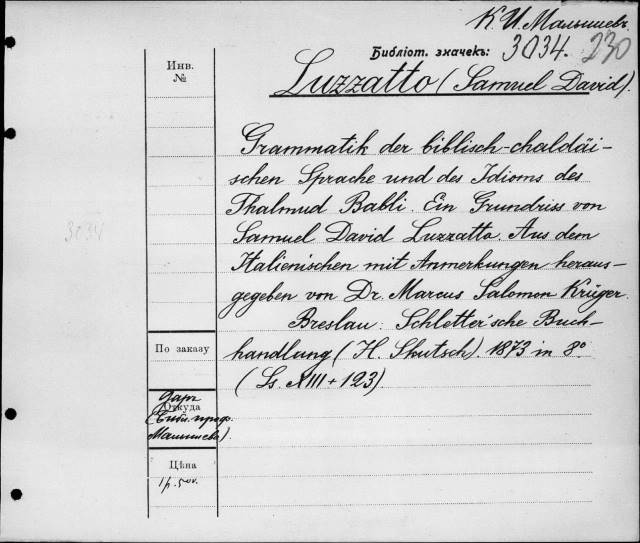 К. И. Малышевъ
Библіот. значекъ: 3034. 230
Luzzatto (Samuel David).
Инв.
№
Grammatik der biblisch-chaldäi-
schen Sprache und des Idioms des
Thalmud Babli. Ein Grundriss von
3034
Samuel David Luzzatto. Aus dem
Italienischen mit Anmerkungen heraus-
gegeben von Dr. Marcus Salomon Krüger.
Breslau: Schletter'sche Buch-
По заказу
handlung (H. Skutsch). 1873 in 8º
(Ss. XIII + 123)
Даръ
Откуда
(Библ. проф.
Малышева).
Цѣна
1 р. 50 к.